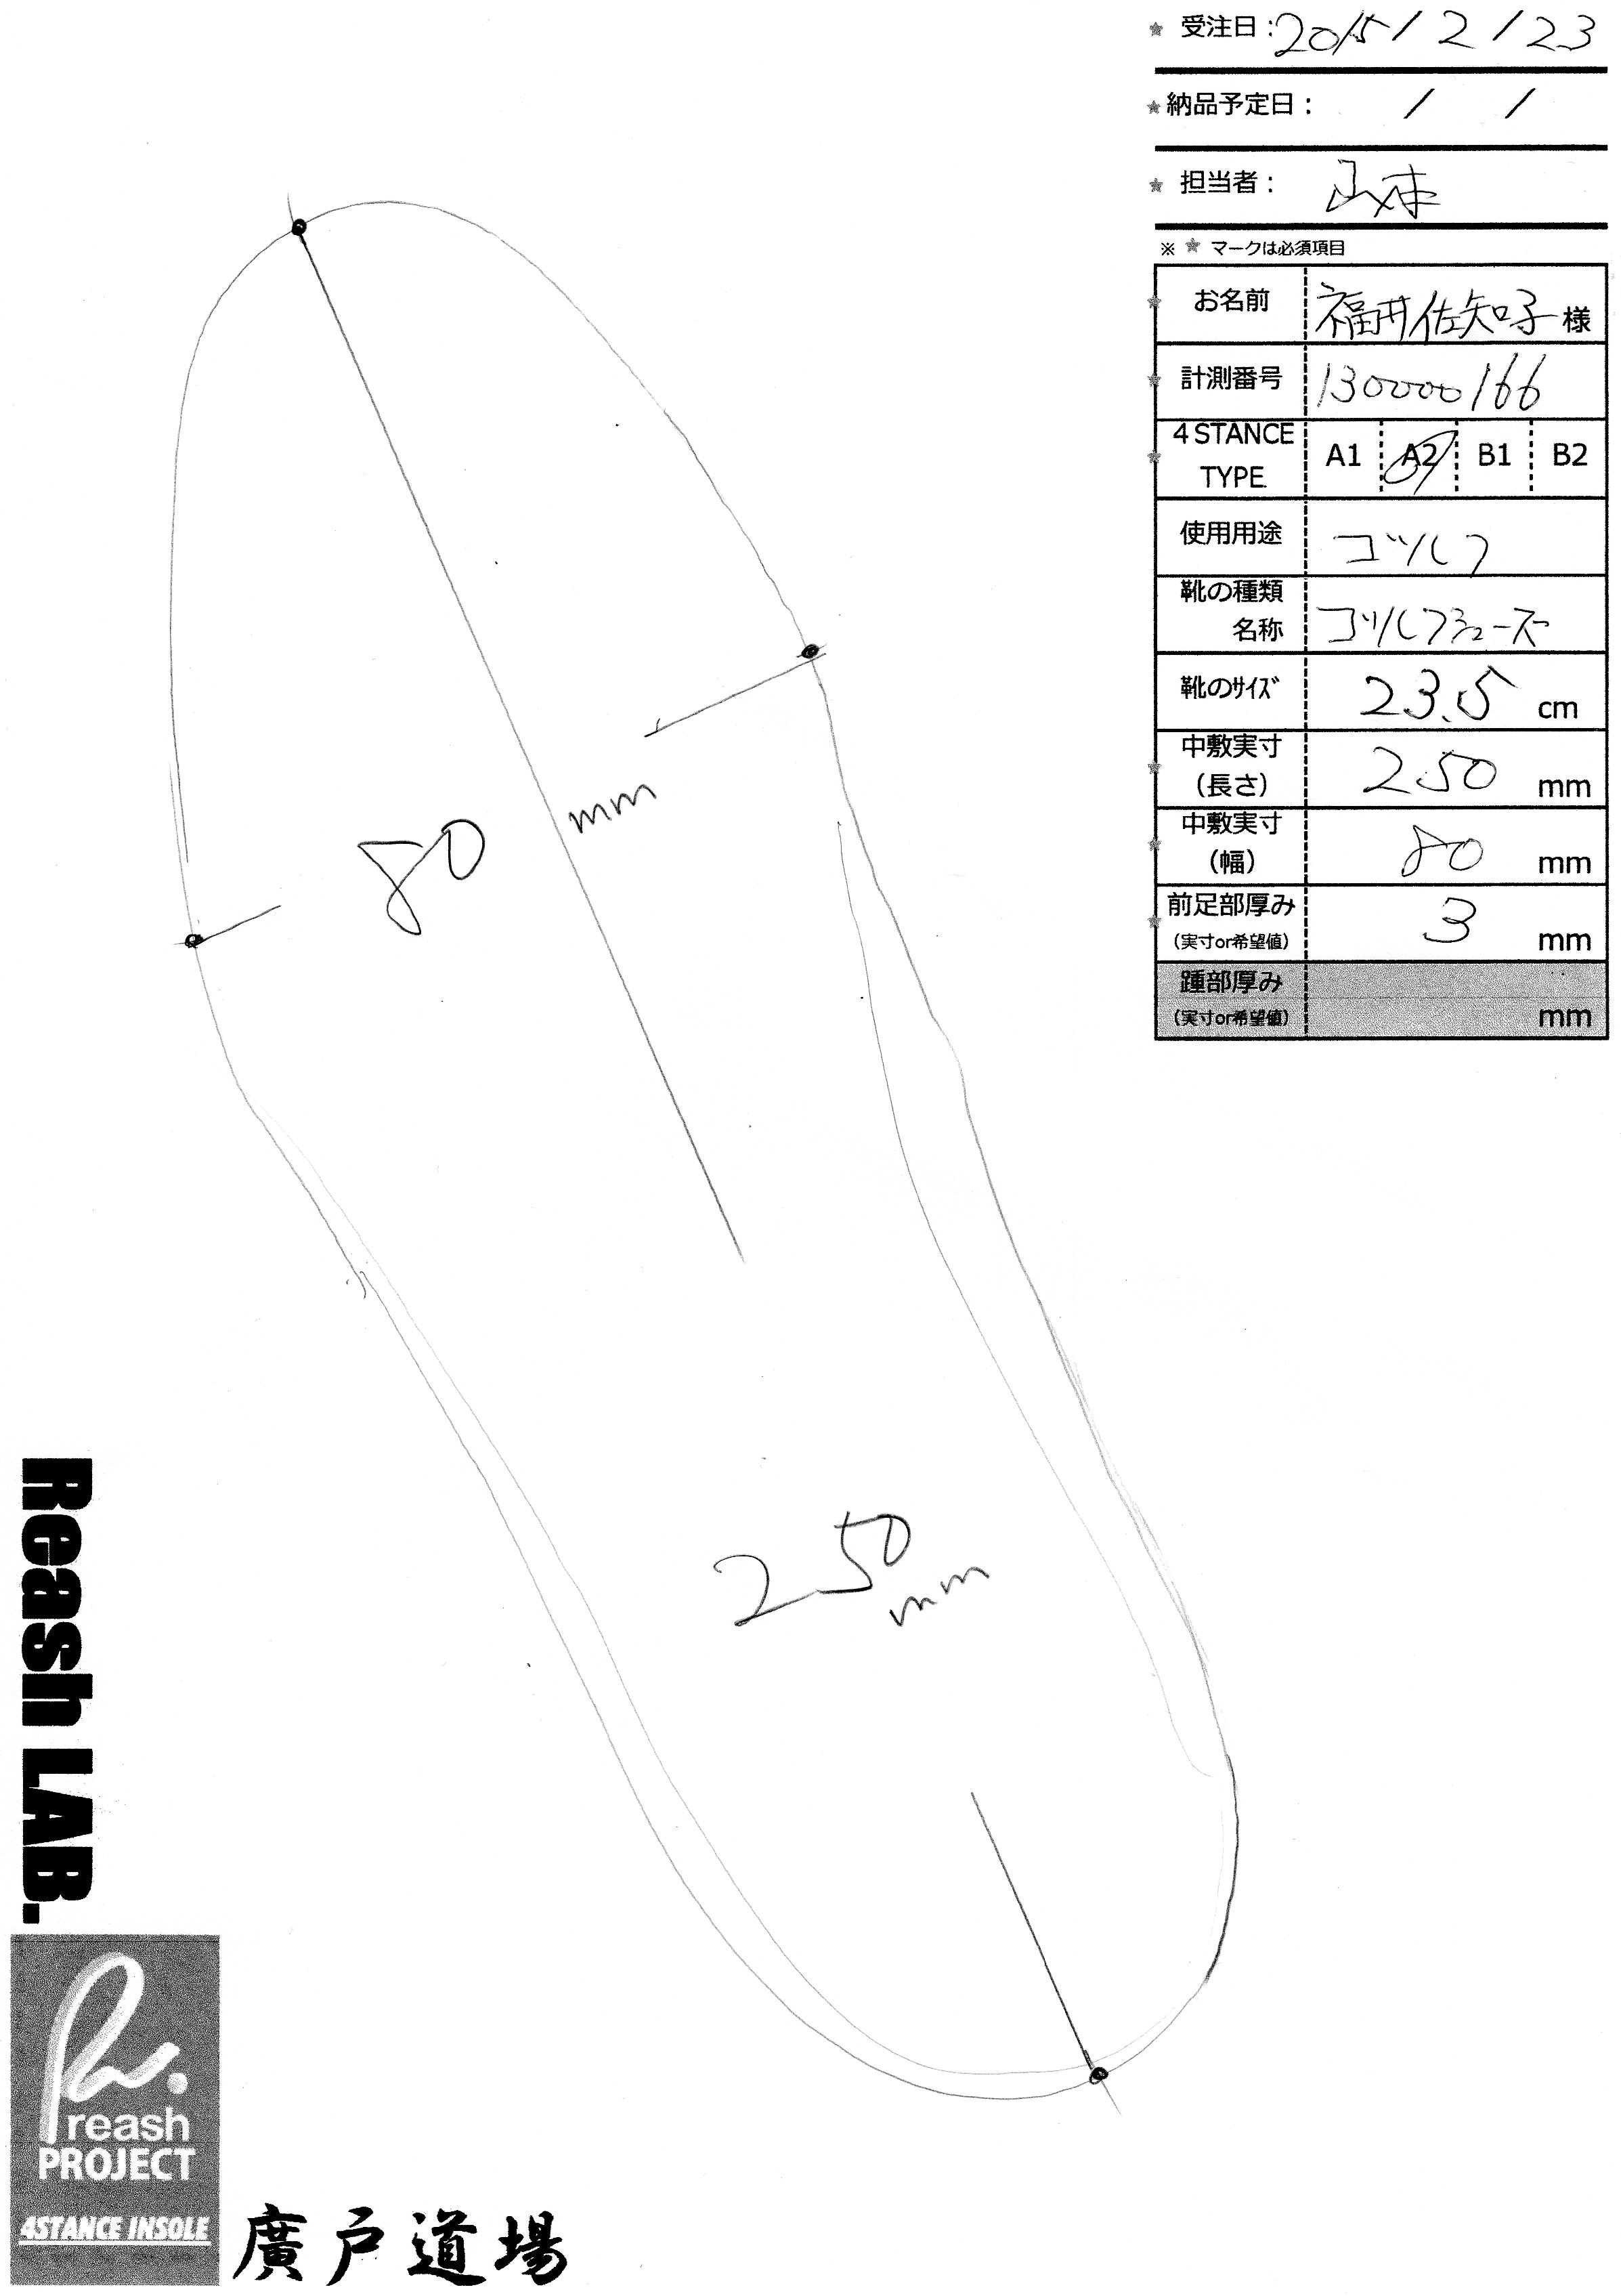 ★ 受注日：2015/2/23
★ 納品予定日： / /
★ 担当者： 山本
※ ★ マークは必須項目
★ お名前 福井佐知子 様
★ 計測番号 130000166
★ 4STANCE TYPE A1 A2 B1 B2
使用用途 ゴルフ
靴の種類
名称 ゴルフシューズ
靴のサイズ 23.5 cm
★ 中敷実寸
(長さ) 250 mm
★ 中敷実寸
(幅) 80 mm
★ 前足部厚み
(実寸or希望値) 3 mm
踵部厚み
(実寸or希望値) mm
80 mm
250 mm
Reash LAB.
reash
PROJECT
4STANCE INSOLE
廣戸道場